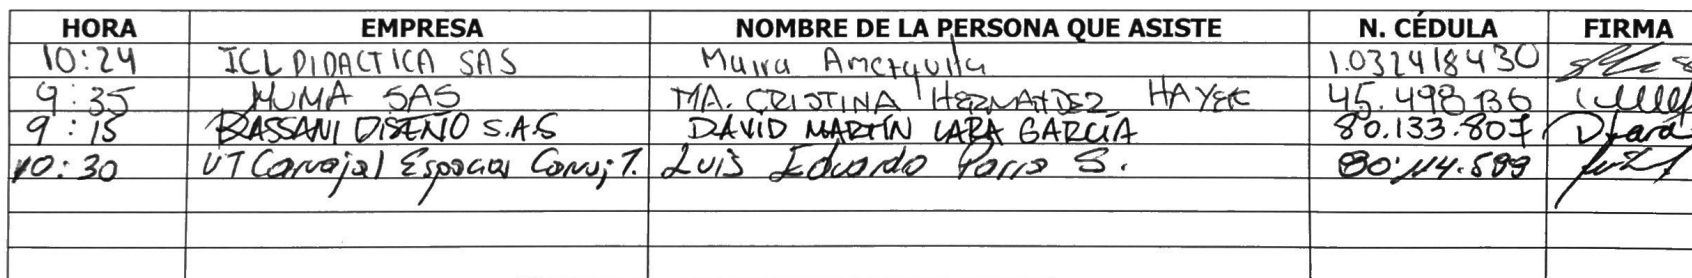 HORA EMPRESA NOMBRE DE LA PERSONA QUE ASISTE N. CÉDULA FIRMA
10:24 ICL DIDACTICA SAS 1.032418430
9:35 MUMA SAS MA. CRISTINA HERNANDEZ HAYEK 45.498136
9:15 BASSANI DISEÑO S.A.S DAVID MARTÍN LARA GARCÍA 80.133.807 DLara
10:30 UT Carvajal Espacios Luis Eduardo Parra S. 80.114.599